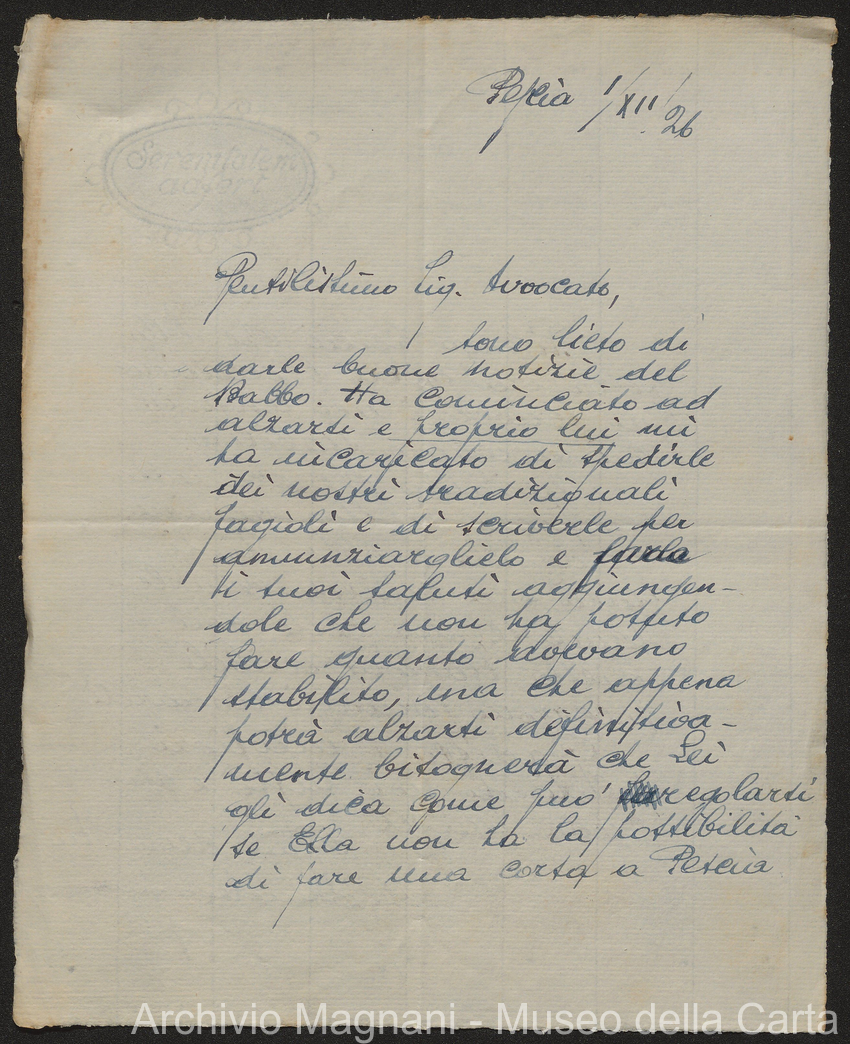 Serenitatem
adfert
Pescia 1/XII/26
Gentilissimo Sig. Avvocato,
sono lieto di
darle buone notizie del
Babbo. Ha cominciato ad
alzarsi e proprio lui mi
ha incaricato di spedirle
dei nostri tradizionali
fagioli e di scriverle per
annunziarglielo e farle
i suoi saluti aggiungen-
dole che non ha potuto
fare quanto avevano
stabilito, ma che appena
potrà alzarsi definitiva-
mente bisognerà che Lei
gli dica come può regolarsi
se Ella non ha la possibilità
di fare una corsa a Pescia
Archivio Magnani - Museo della Carta